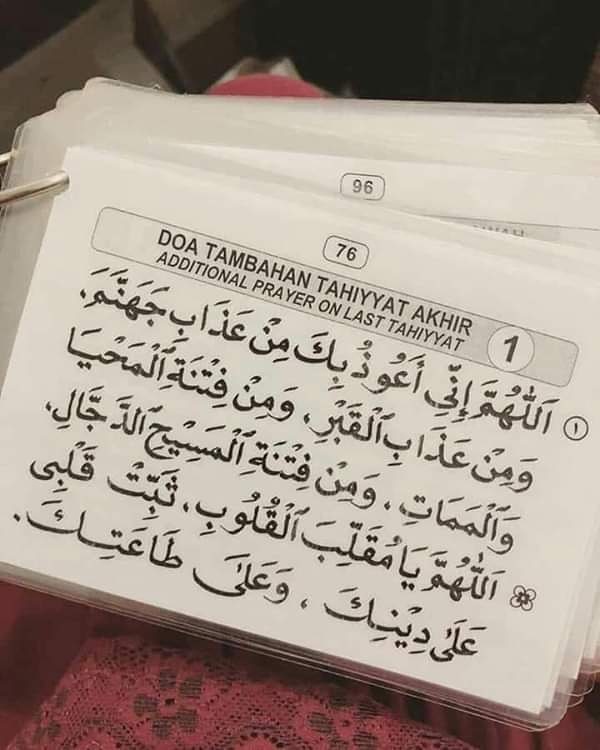 96
76
DOA TAMBAHAN TAHIYYAT AKHIR
ADDITIONAL PRAYER ON LAST TAHIYYAT
1
١ اَللّٰهُمَّ إِنِّي أَعُوْذُ بِكَ مِنْ عَذَابِ جَهَنَّمَ،
وَمِنْ عَذَابِ الْقَبْرِ، وَمِنْ فِتْنَةِ الْمَحْيَا
وَالْمَمَاتِ، وَمِنْ فِتْنَةِ الْمَسِيْحِ الدَّجَّالِ.
اَللّٰهُمَّ يَا مُقَلِّبَ الْقُلُوبِ، ثَبِّتْ قَلْبِى
عَلَى دِيْنِكَ، وَعَلَى طَاعَتِكَ.